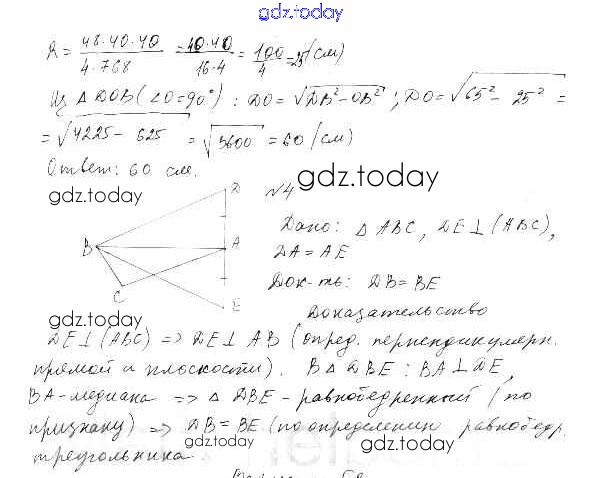 gdz.today
R = 48·40·40 / 4·768 = 40·40 / 16·4 = 100 / 4 = 25 (см)
Из △ DOB (∠O=90°) : DO = √DB² − OB² ; DO = √65² − 25² =
= √4225 − 625 = √3600 = 60 (см)
Ответ: 60 см.
gdz.today
D
N4
gdz.today
Дано: △ ABC, DE ⊥ (ABC),
B
A
DA = AE
gdz.today
C
Док-ть: DB = BE
E
gdz.today
Доказательство
DE ⊥ (ABC) => DE ⊥ AB (опред. перпендикулярн.
прямой и плоскости). В △ DBE : BA ⊥ DE,
BA - медиана => △ DBE - равнобедренный (по
признаку) => DB = BE (по определению равнобедр.
gdz.today
gdz.today
треугольника